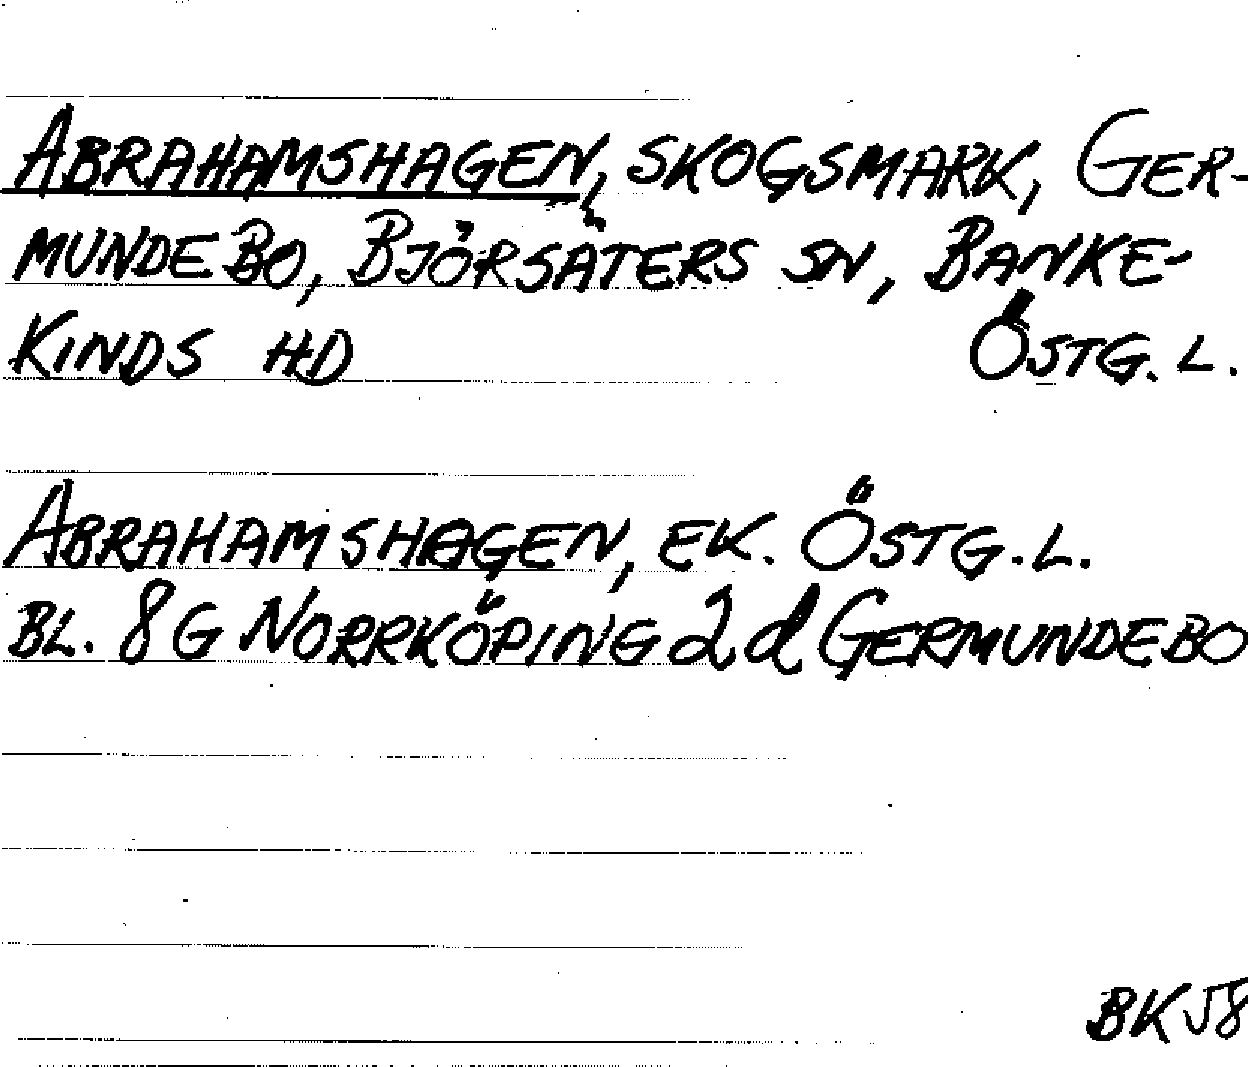 ABRAHAMSHAGEN, SKOGSMARK, GER-
MUNDEBO, BJÖRSÄTERS SN, BANKE-
KINDS HD ÖSTG. L.
ABRAHAMSHAGEN, EK. ÖSTG. L.
BL. 8 G NORRKÖPING 2 d GERMUNDEBO
BK58